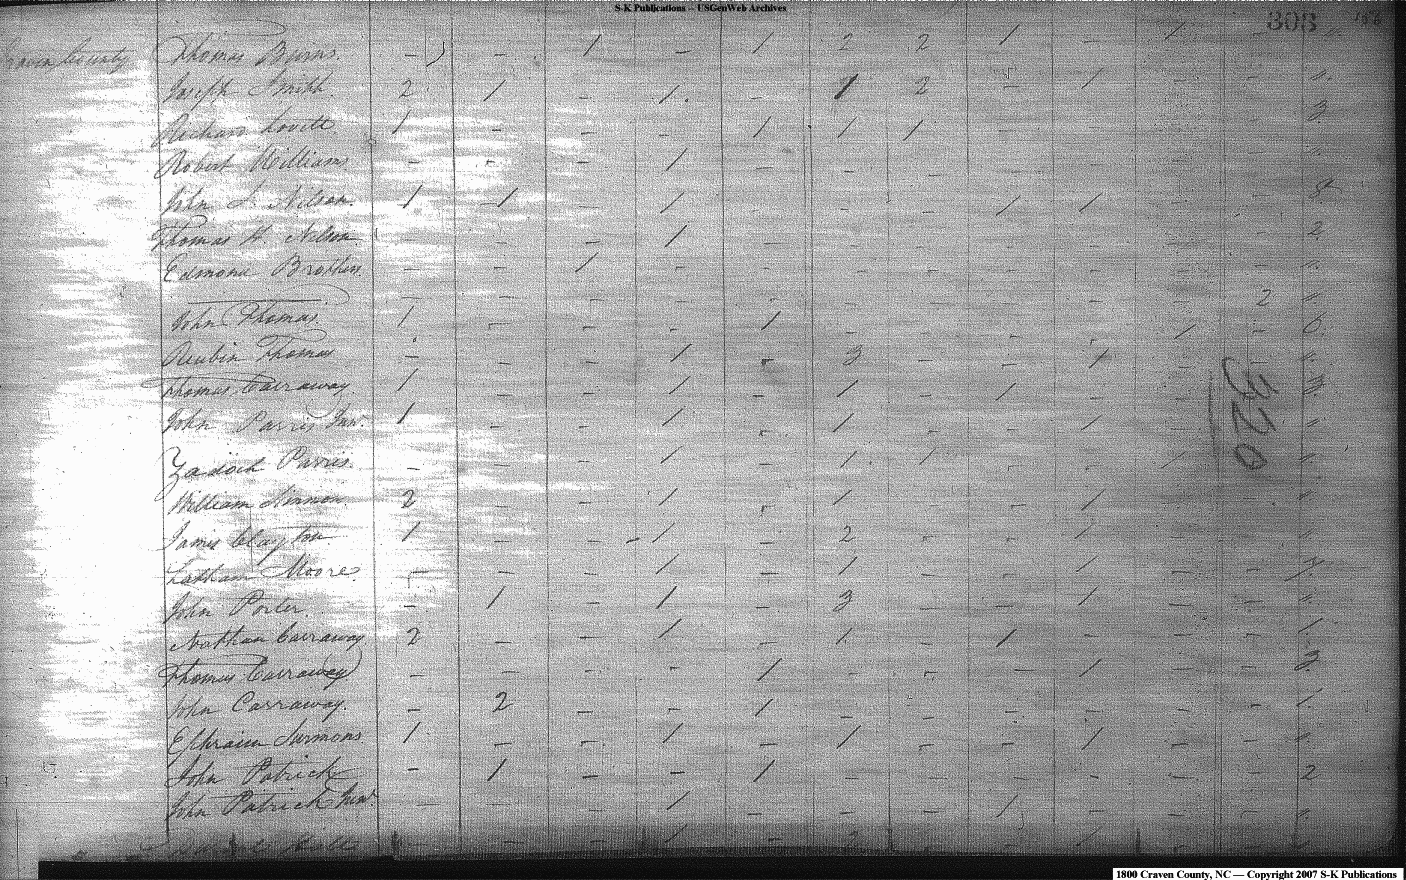 S-K Publications -- USGenWeb Archives
303
Craven County Thomas Burns. - - / - / 2 2 / - /
Joseph Smith. 2 / - / - / 2 - / -
3
Richard Lovitt / - - - / / /
Robert Williams - - - / -
John S. Nelson. 1 / - / - - - / /
Thomas H. Nelson - - - / - 2
Edmond Brothers. - - / - -
2
John Thomas. / - - - / - - - - / - 6
Reubin Thomas - - - / - 3 - - /
Thomas Carraway. / - - / - / - /
John Parris Junr. 1 - - / - / - - /
320
Zadoch Parris. - - - / - / / - - /
William 2 - - / - / - - /
James Clayton / - - / - 2 - - /
Latham Moore. - - - / - / - - /
John Porter - / - / - 3 - - / -
Nathan Carraway 2 - - / - / - / - - - /
Thomas Carraway - - - - / - - - / - - 3
John Carraway. - 2 - - / - - - - - - /
Ephraim / - - / - / - - / -
John Patrick - / - - / - - - - - - 2
John Patrick Junr - - - / - - - / - -
1800 Craven County, NC — Copyright 2007 S-K Publications